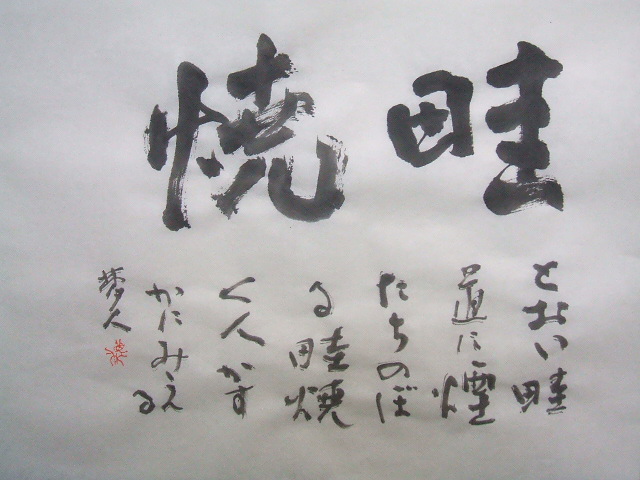 畦焼
とおい畦
道に煙
たちのぼ
る畦焼
く人かす
かにみえ
る